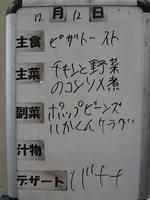 12月12日
主食 ピザトースト
主菜 チキンと野菜
のコンソメ煮
副菜 ポップビーンズ
いかくんサラダ
汁物
デザート バナナ